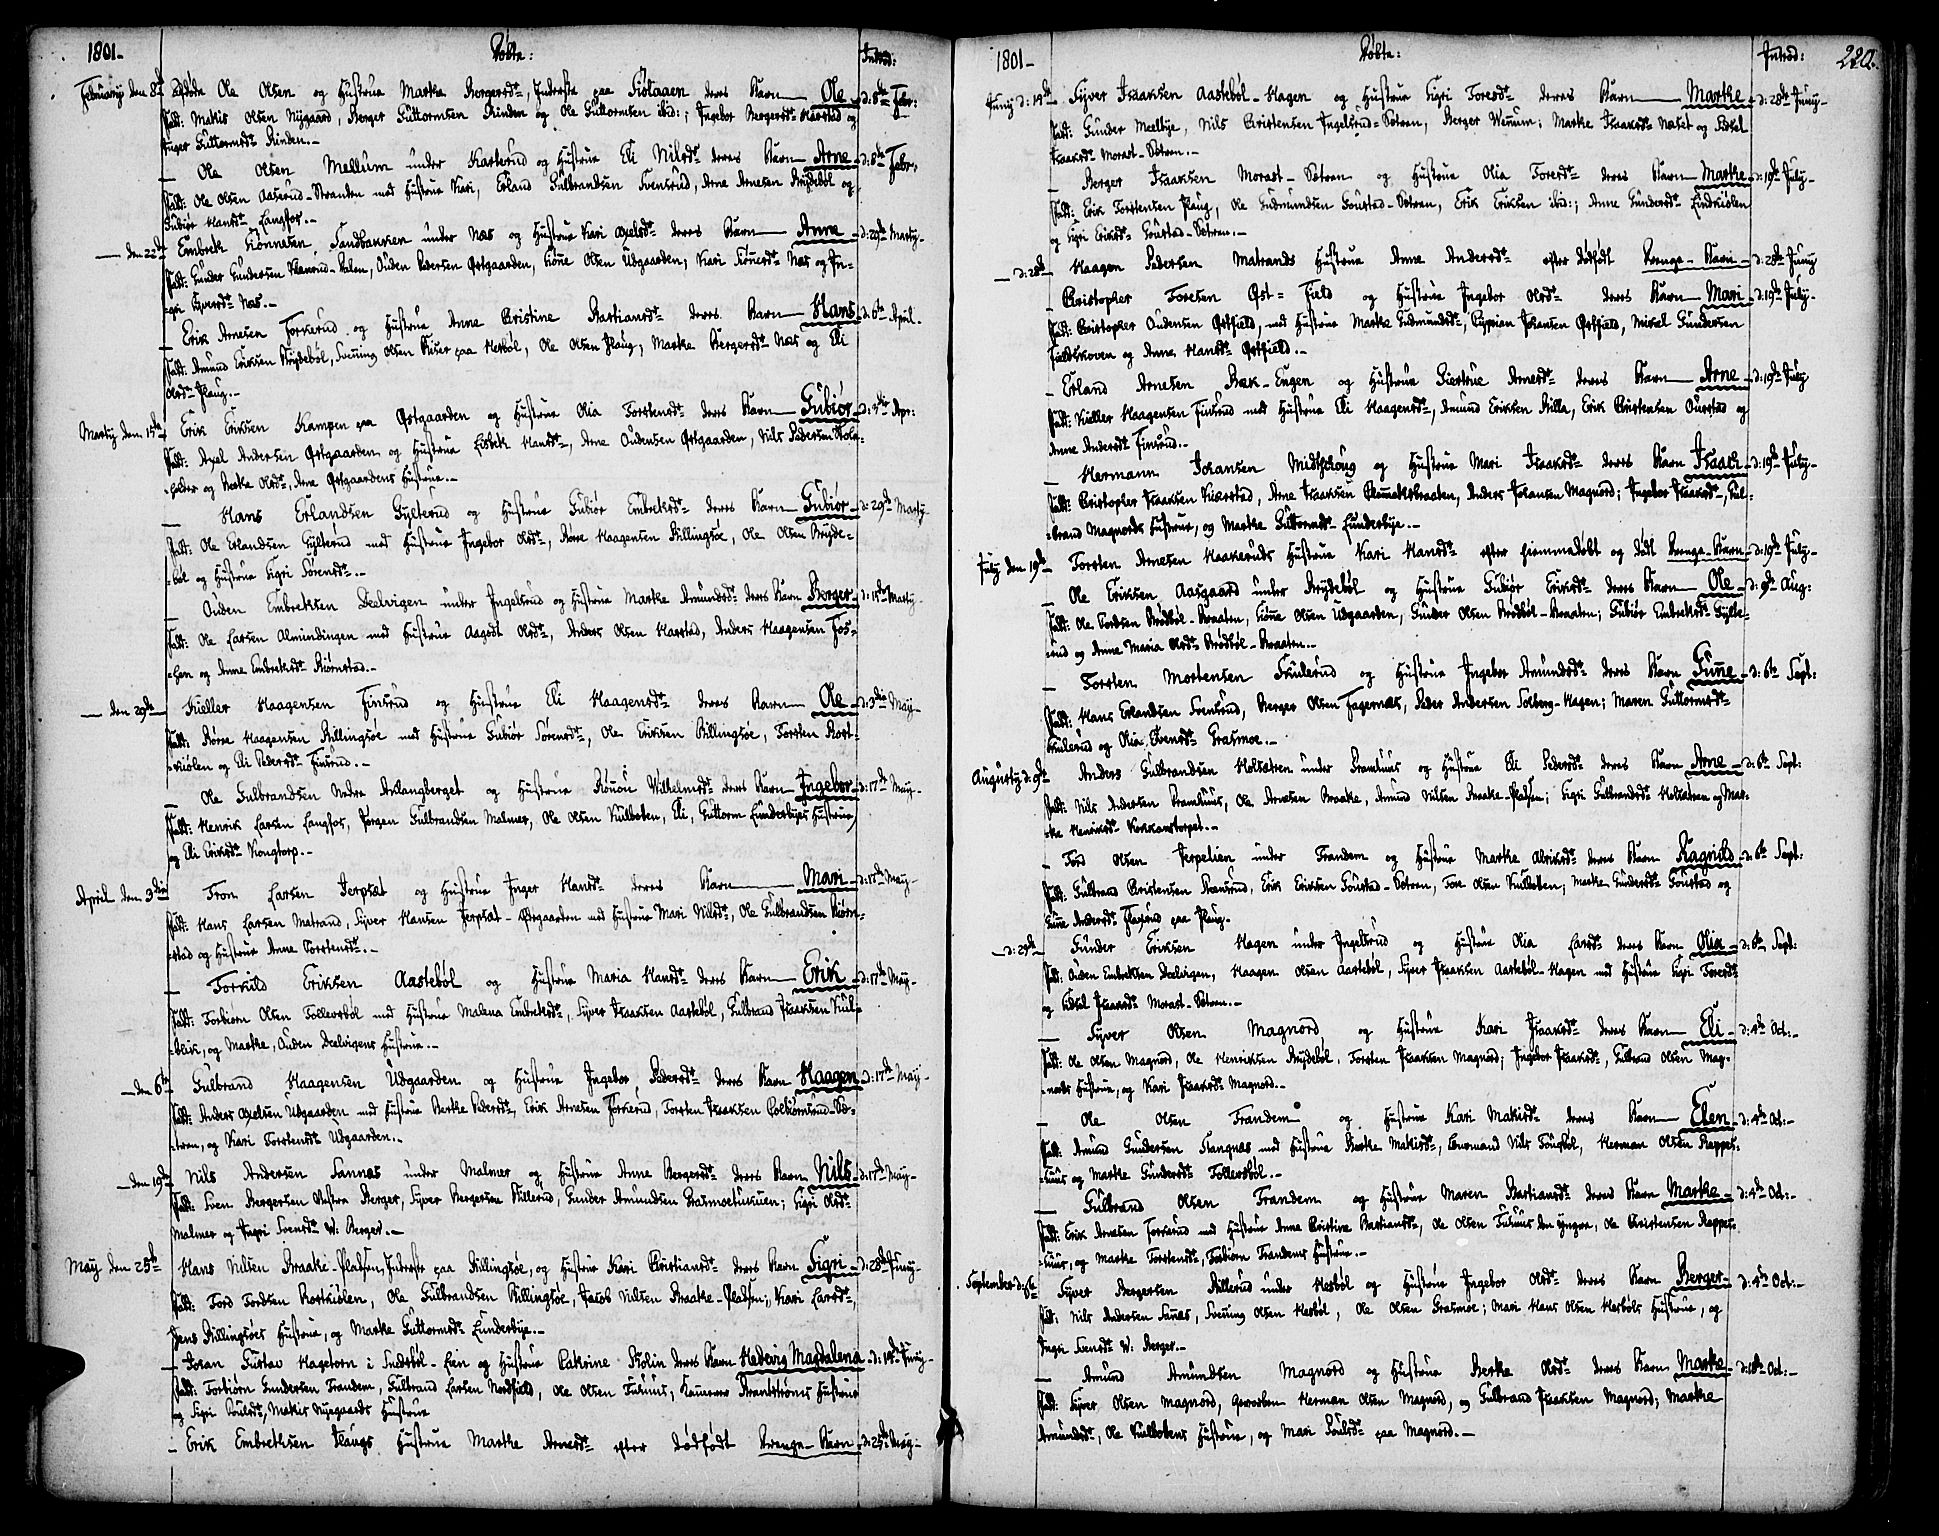 1801. Døbte: Introd:
Februarij den 8de Ole Olsen og Hustrue Marthe Bergersdtr, Inderste paa deres Barn Ole d: 8de Febr:
Fadd: Makis Olsen Nygaard, Berger Guttormsen Rinden og Ole Guttormsen ibid:; Ingebor Bergersdtr Harstad og
Inger Guttormsdtr Rinden.
Ole Olsen Mellum under Karterud og Hustrue Eli Nilsdtr deres Barn Arne d: 8de Febr,
Fadd: Ole Olsen Aaserud-Stranden med Hustrue Kari, Erland Gulbrandsen Svensrud, Arne Arnesen Brydebøl og
Gubiør Hansdtr Langfos.
den 22de Embrek Tønnesen Sandbakken under Næs og Hustrue Kari Axelsdtr deres Barn Anne d: 29de Martij
Fadd: Gunder Gundersen, Ouden Pedersen Østgaarden, Tøne Olsen Udgaarden; Kari Næs og In-
gri Syversdtr Næs.
Erik Arnesen Torkerud og Hustrue Anne Christine Bastiansdtr deres Barn Hans d: 6te April.
Fadd: Amund Eriksen Brydebøl, Svening Olsen paa Herbøl, Ole Olsen Haug; Marthe Bergersdtr Næs og Eli
Olsdtr Haug.
Martij den 15de Erik Eriksen Kampen paa Østgaarden og Hustrue Olia Torstensdtr deres Barn Gubiør Apr:
Fadd: Axel Andersen Østgaarden og Hustrue Lisbek Hansdtr, Arne Oudensen Østgaarden, Nils Pedersen Skole-
holder og Berthe Olsdtr, Arne Østgaardens Hustrue.
Hans Erlandsen Gylterud og Hustrue Gubiør Embreksdtr deres Barn Gubiør d: 29de Martij
Fadd: Ole Erlandsen Gylterud med Hustrue Ingebor Olsdtr, Børre Haagensen Billingsøe, Ole Olsen Bryde-
bøl og Hustrue Sigri Sørensdtr.
Ouden Embreksen Deelvigen under Ingelsrud og Hustrue Marthe Amundsdtr deres Barn Berger d: 15de Martij
Fadd: Ole Larsen Almindingen med Hustrue Aagodt Olsdtr, Anders Olsen Harstad, Anders Haagensen Fos-
sen og Anne Embreksdtr Biørnstad.
den 29de Kieller Haagensen Finsrud og Hustrue Eli Haagensdtr deres Barn Ole d: 3die May
Fadd: Børre Haagensen Billingsøe med Hustrue Gubiør Sørensdtr, Ole Eriksen Billingsøe, Torsten Rort-
kiølen og Eli Pedersdtr Finsrud.
Ole Gulbrandsen Nedre Aklangberget og Hustrue Rønou Wilhelmsdtr deres Barn Ingebor d: 17de May
Fadd: Henrik Larsen Langfos, Jørgen Gulbrandsen Malmer, Ole Olsen Kulboten, Eli, Guttorm Lunderbyes Hustrue
og Eli Eriksdtr Kongtorp.
April den 3die Tron Larsen Jerpset og Hustrue Inger Hansdtr deres Barn Mari d: 17de May
Fadd: Hans Larsen Matrand, Syver Hansen Jerpset-Østgaarden med Hustrue Mari Nilsdtr, Ole Gulbrandsen Biørn-
stad og Hustrue Anne Torstensdtr.
Torkild Eriksen Aastebøl og Hustrue Maria Hansdtr deres Barn Erik d: 17de May
Fadd: Torbiørn Olsen Tollersbøl med Hustrue Malena Embreksdtr, Syver Isaaksen Aastebøl, Gulbrand Isaaksen Kul-
blik, og Marthe, Ouden Deelvigens Hustrue.
den 6te Gulbrand Haagensen Udgaarden og Hustrue Ingebor Pedersdtr deres Barn Haagen d: 17de May
Fadd: Anders Axelsen Udgaarden med Hustrue Berthe Pedersdtr, Erik Arnesen Torkerud, Torsten Isaaksen Kolbiørnsrud-Sæ-
tren, og Kari Torstensdtr Udgaarden.
den 19de Nils Andersen Sannæs under Malmer og Hustrue Anne Bergersdtr deres Barn Nils d: 17de May
Fadd: Sven Bergersen Westre Berger, Syver Bergersen Billerud, Gunder Amundsen Grasmoetunnen; Sigri Olsdtr
Malmer og Ingri Svensdtr W: Berger.
May den 25de Hans Nilsen Braate-Pladsen, Inderste paa Billingsøe, og Hustrue Kari Christiansdtr deres Barn Sigri d: 28de Junij
Fadd: Tord Tordsen Rortkiølen, Ole Gulbrandsen Billingsøe, Jacob Nilsen Braate-Pladsen; Kari Larsdtr,
Jens Billingsøes Hustrue, og Marthe Guttormsdtr Lunderbye.
Johan Gustav Hagetorn i Snedsbøl-Eien og Hustrue Cathrine Stolin deres Barn Hedevig Magdalena d: 14de Junij
Fadd: Torbiørn Gundersen Trandem, Gulbrand Larsen Nordfield, Ole Olsen Tuhuus, Kamerer Brantstrøms Hustrue
og Sigri Poulsdtr, Makis Nyegaards Hustrue
Erik Embrethsen Haugs Hustrue Marthe Arnesdtr efter dødfødt Drenge-Barn d: 25de May
1801 Døbte: Introd: 220.
Junij d: 14de Syver Isaaksen Aastebøl-Hagen og Hustrue Sigri Toresdtr deres Barn Marthe d: 28de Junij
Fadd: Gunder Meelbye, Nils Christensen Ingelsrud-Sætren, Berger Wennum; Marthe Isaaksdtr Næset og Sidsel
Isaaksdtr Morast-Sætren.
Berger Isaaksen Morast-Sætren og Hustrue Olia Toresdtr deres Barn Marthe d: 19de Julij
Fadd: Erik Torstensen Haug, Ole Gudmundsen Goustad-Sætren, Erik Eriksen ibid:; Anne Gundersdtr Lindkiølen
og Sigri Eriksdtr Goustad-Sætren.
d: 28de Haagen Pedersen Matrands Hustrue Anne Andersdtr efter dødfødt Drenge-Barn d: 28de Junij
Christopher Toresen Øst-Field og Hustrue Ingebor Olsdtr deres Barn Mari d: 19de Julij
Fadd: Christopher Oudensen Østfield, med Hustrue Marthe Gudmundsdtr, Cyprian Johansen Østfield, Mikel Gundersen
Fieldskoven og Anne Hansdtr Østfield.
Erland Arnesen Bæk-Engen og Hustrue Giertrue Arnesdtr deres Barn Arne d: 19de Julij
Fadd: Kieller Haagensen Finsrud med Hustrue Eli Haagensdtr, Amund Eriksen Billa, Erik Christensen Ourstad og
Anne Andersdtr Finsrud.
Hermann Johansen Midtskoug og Hustrue Mari Isaaksdtr deres Barn Isaach d: 19de Julij
Fadd: Christopher Isaaksen Kierstad, Arne Isaaksen Plommetbraaten, Anders Johansen Magnord; Ingebor Isaaksdtr, Gul-
brand Magnords Hustrue, og Marthe Guttormsdtr Lunderbye.
Julij den 19de Torsten Arnesen Haakeruds Hustrue Kari Hansdtr efter hiemmedøbt og dødt Drenge-Barn d: 19de Julij
Ole Eriksen Aasgaard under Brydebøl og Hustrue Gubiør Eriksdtr deres Barn Ole d: 9de Aug:
Fadd: Ole Tordsen Brødbøl-Braaten, Tøne Olsen Udgaarden, Gunder Olsen Brødbøl-Braaten; Gubiør Embreksdtr Gylte-
rud og Anne Maria Olsdtr Brødbøl-Braaten.
Torsten Mortensen Skulerud og Hustrue Ingebor Amundsdtr deres Barn Gune d: 6te Sept:
Fadd: Hans Erlandsen Svensrud, Berger Olsen Fagernæs, Peder Andersen Solberg-Hagen; Maren Guttormsdtr
Skulerud og Olia Svensdtr Grasmoe.
Augustij d: 9de Anders Gulbrandsen Holtsætren under Bramhuus og Hustrue Eli Pedersdtr deres Barn Arne d: 6te Sept:
Fadd: Nils Andersen Bramhuus, Ole Arnesen Braate, Amund Nilsen Braate-Pladsen; Sigri Gulbrandsdtr Holtsætren og Mar-
the Henriksdtr Kirkenstorpet.
Tord Olsen Jerpetien under Trandem og Hustrue Marthe Alriksdtr deres Barn Ragnild d: 6te Sept:
Fadd: Gulbrand Christensen Svensrud, Erik Eriksen Goustad-Sætren, Tore Olsen Kulboten; Marthe Gundersdtr Goustad og
Gune Andersdtr Flaxrud paa Haug.
d: 29de Gunder Eriksen Hagen under Ingelsrud og Hustrue Olia Larsdtr deres Barn Olia d: 6te Sept:
Fadd: Ouden Embreksen Deelvigen, Haagen Olsen Aastebøl, Syver Isaaksen Aastebøl-Hagen med Hustrue Sigri Toresdtr
og Sidsel Isaaksdtr Morast-Sætren.
Syver Olsen Magnord og Hustrue Kari Isaaksdtr deres Barn Eli d: 4de Oct:
Fadd: Ole Olsen Magnord, Ole Henriksen Brydebøl, Torsten Isaaksen Magnord; Ingebor Isaaksdtr, Gulbrand Olsen Mag-
nords Hustrue, og Kari Isaaksdtr Magnord.
Ole Olsen Trandem og Hustrue Kari Makisdtr deres Barn Elen d: 4de Oct:
Fadd: Amund Gundersen Stangnæs med Hustrue Berthe Makisdtr, Lensmand Nils Tougbøl, Herman Olsen Rappes-
huus og Marthe Gundersdtr Tollersbøl.
Gulbrand Olsen Trandem og Hustrue Maren Bastiansdtr deres Barn Marthe d: 4de Oct:
Fadd: Erik Arnesen Torkerud med Hustrue Anne Christine Bastiansdtr, Ole Olsen Tuhuus den yngre, Ole Christensen Rappes-
huus, og Marthe Torstensdtr, Torbiørn Trandems Hustrue.
September d: 6te Syver Bergersen Billerud under Herbøl og Hustrue Ingebor Olsdtr deres Barn Berger d: 4de Oct:
Fadd: Nils Andersen Sanæs, Svening Olsen Herbøl, Ole Olsen Grasmoe; Mari Hans Olsen Herbøls Hustrue, og
Ingri Svensdtr W: Berger.
Amund Amundsen Magnord og Hustrue Berthe Olsdtr deres Barn Marthe Oct:
Fadd: Syver Olsen Magnord, Herman Olsen Magnord, og Gulbrand Isaaksen Magnord; Marthe
Amundsdtr, Ole Kulbotens Hustrue, og Mari Poulsdtr paa Magnord.